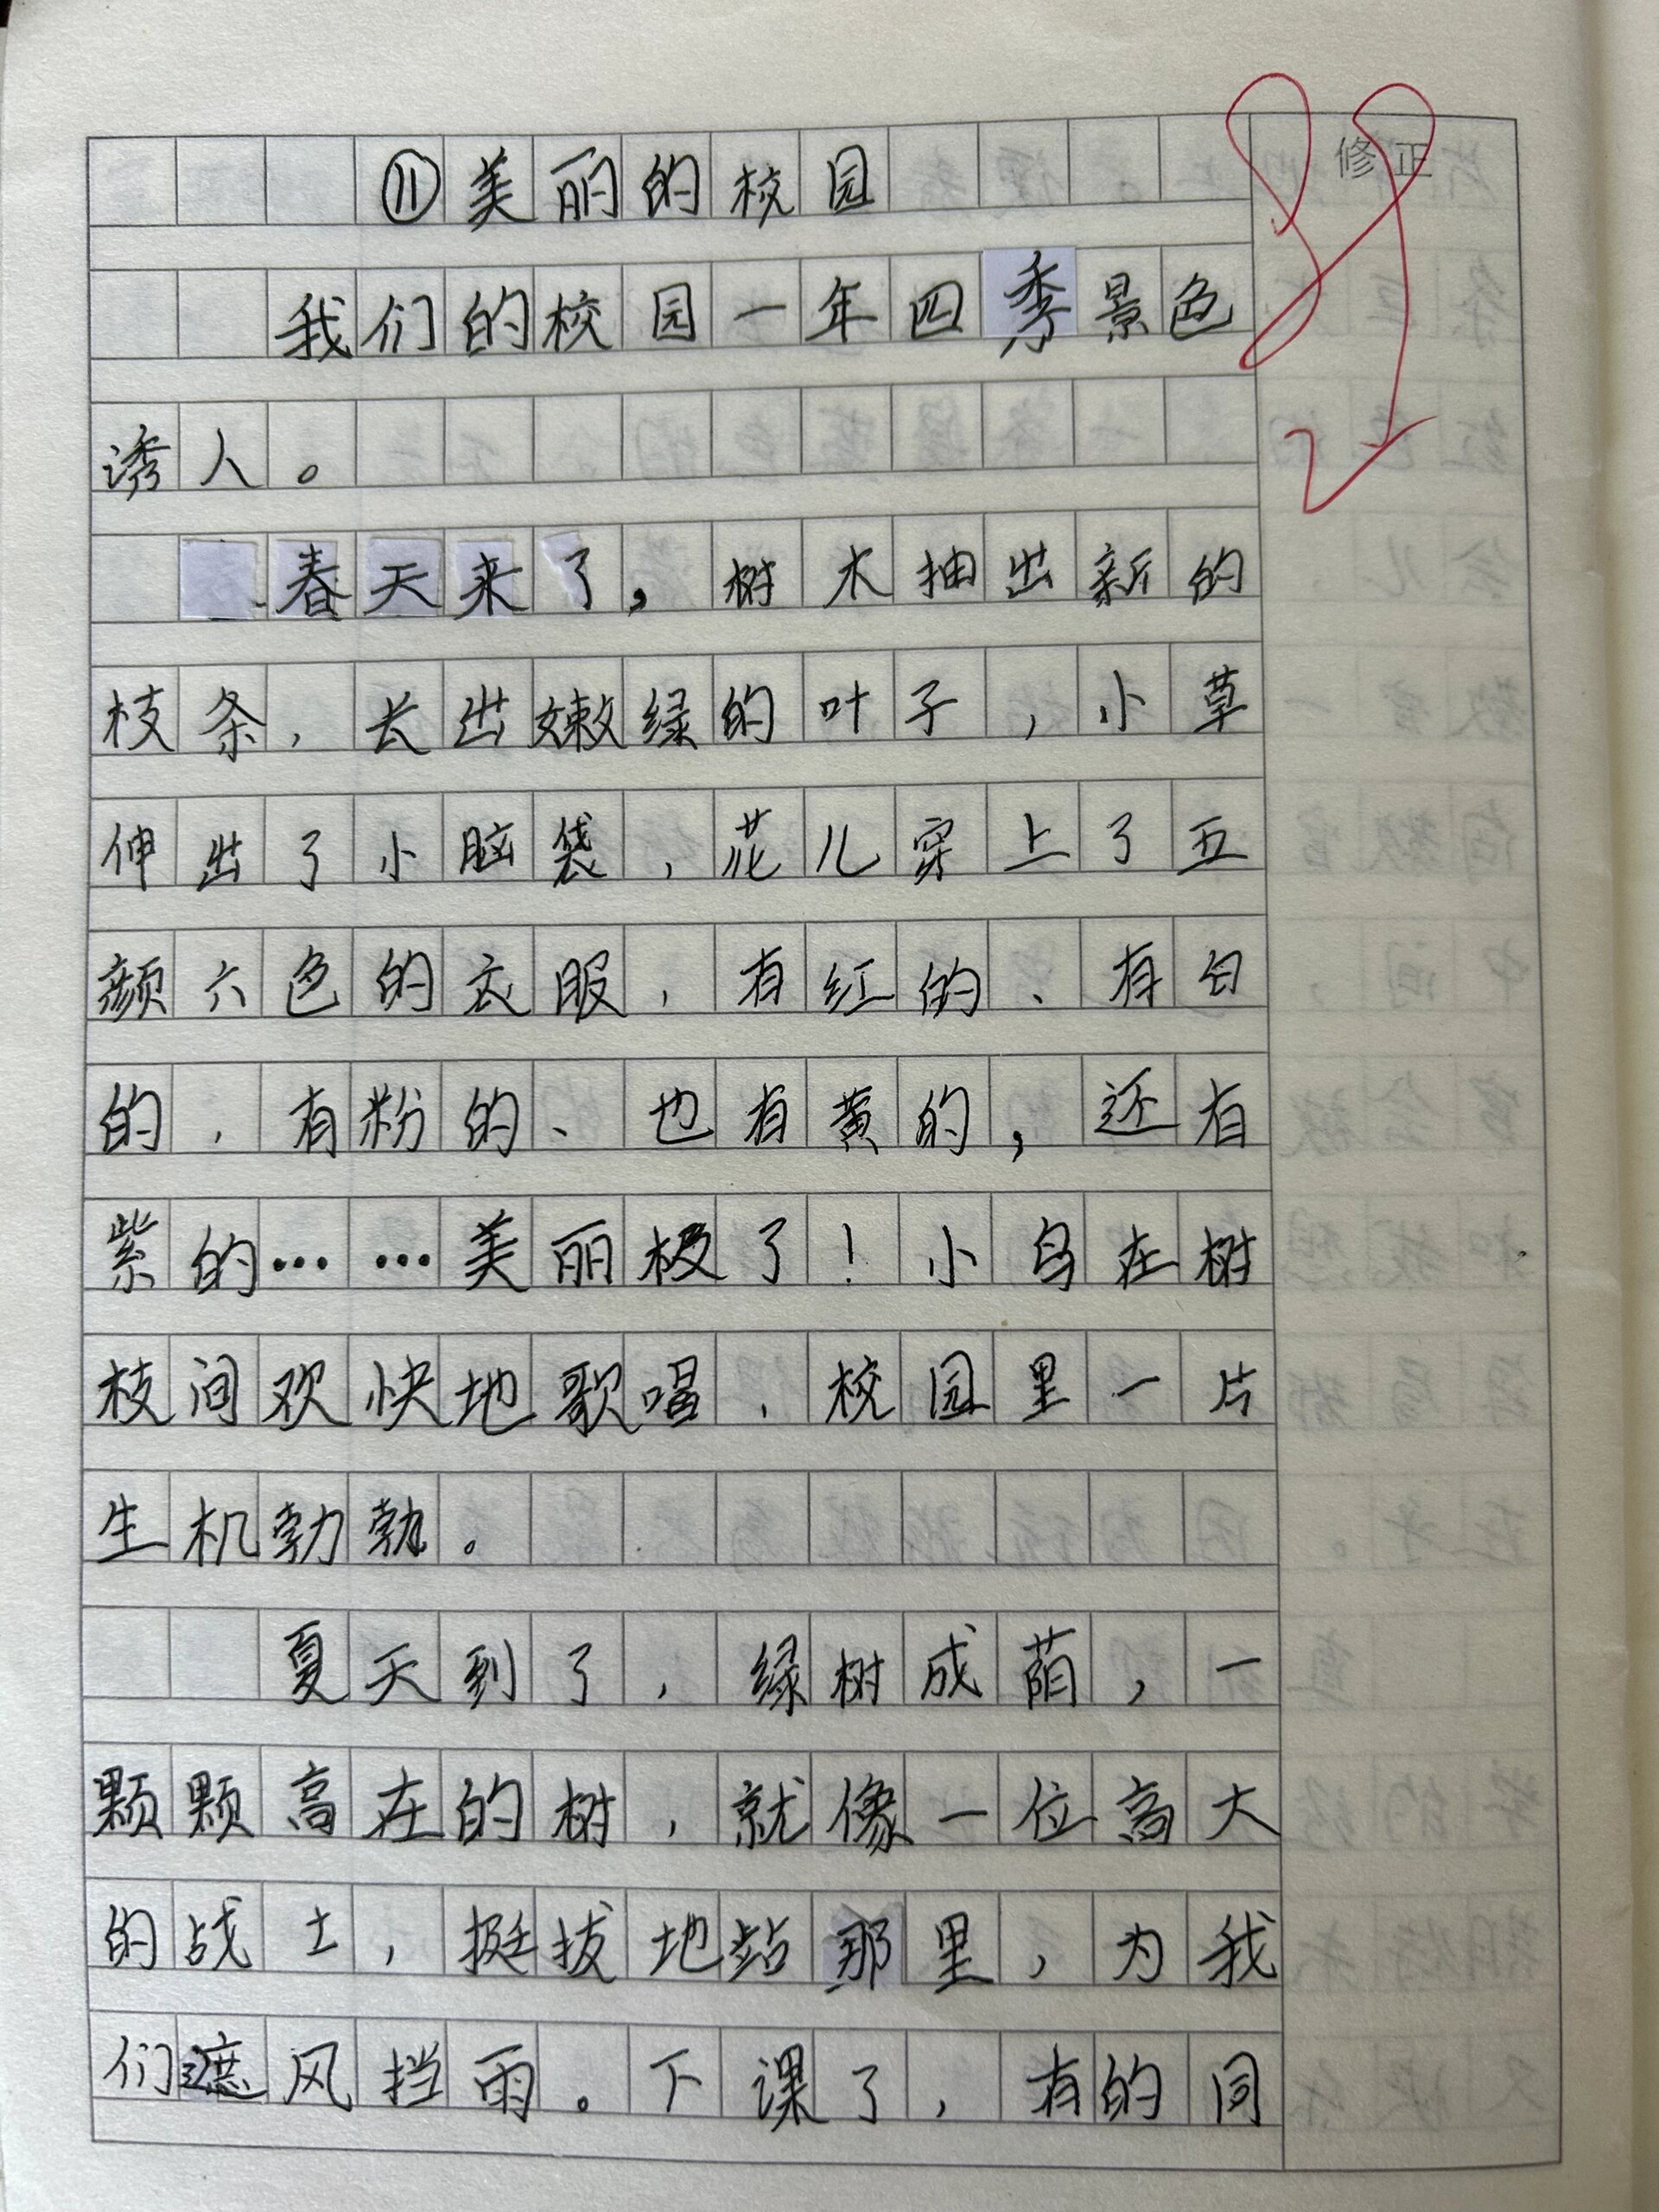 ⑪美丽的校园
修正
我们的校园一年四季景色
诱人。
春天来了，树木抽出新的
枝条，长出嫩绿的叶子，小草
伸出了小脑袋，花儿穿上了五
颜六色的衣服，有红的、有白
的，有粉的、也有黄的，还有
紫的……美丽极了！小鸟在树
枝间欢快地歌唱，校园里一片
生机勃勃。
夏天到了，绿树成荫，一
颗颗高在的树，就像一位高大
的战士，挺拔地站那里，为我
们遮风挡雨。下课了，有的同